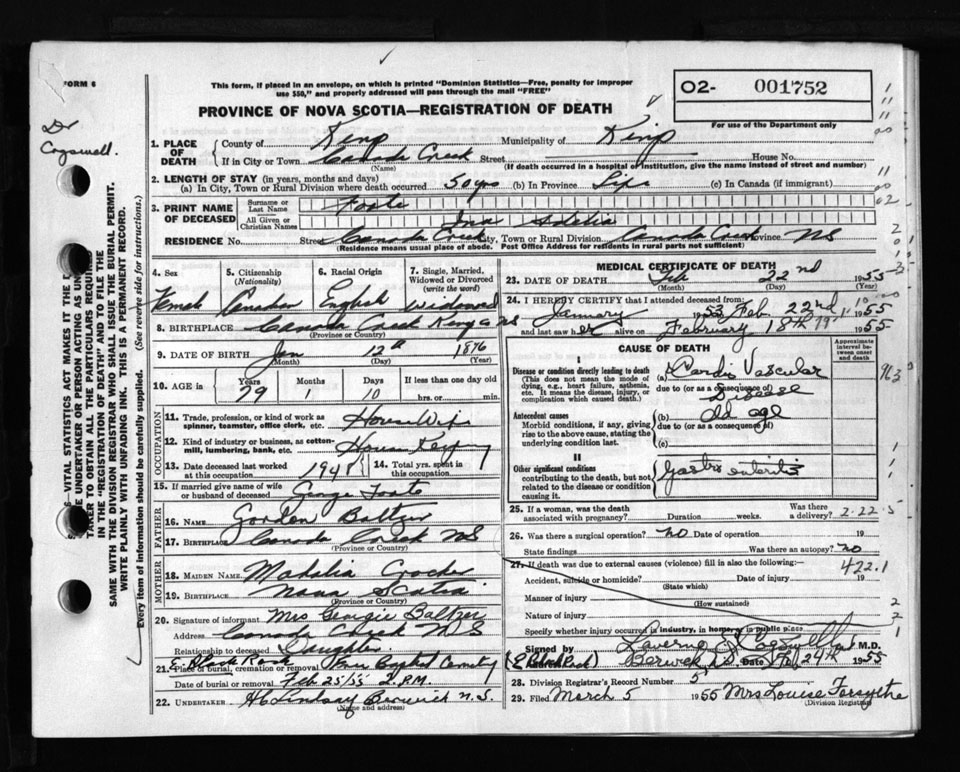 FORM 6
This form, if placed in an envelope, on which is printed "Dominion Statistics—Free, penalty for improper
use $50," and properly addressed will pass through the mail "FREE"
O2- 001752
For use of the Department only
PROVINCE OF NOVA SCOTIA—REGISTRATION OF DEATH
Dr
Cogswell.
1. PLACE OF DEATH
County of Kings Municipality of Kings
If in City or Town Canada Creek Street House No.
(Name) (If death occurred in a hospital or institution, give the name instead of street and number)
2. LENGTH OF STAY (in years, months and days)
(a) In City, Town or Rural Division where death occurred 50 yrs (b) In Province Life (c) In Canada (if immigrant)
3. PRINT NAME OF DECEASED
Surname or Last Name Foote
All Given or Christian Names Ina
RESIDENCE No. Street Canada Creek City, Town or Rural Division Canada Creek Province NS
(Residence means usual place of abode. Post Office Address for residents in rural parts not sufficient)
4. Sex
Female
5. Citizenship (Nationality)
Canadian
6. Racial Origin
English
7. Single, Married, Widowed or Divorced (write the word)
Widowed
8. BIRTHPLACE Canada Creek Kings Co NS
(Province or Country)
9. DATE OF BIRTH Jan 12th 1876
(Month) (Day) (Year)
10. AGE in Years Months Days If less than one day old
79 10 hrs. or min.
OCCUPATION
11. Trade, profession, or kind of work as
spinner, teamster, office clerk, etc. House Wife
12. Kind of industry or business, as cotton-
mill, lumbering, bank, etc. House
13. Date deceased last worked
at this occupation 1948
14. Total yrs. spent in
this occupation
15. If married give name of wife
or husband of deceased George Foote
FATHER
16. NAME Gorden Baltzer
17. BIRTHPLACE Canada Creek NS
(Province or Country)
MOTHER
18. MAIDEN NAME Mahalia
19. BIRTHPLACE Nova Scotia
(Province or Country)
20. Signature of informant Mrs Georgie Baltzer
Address Canada Creek NS
Relationship to deceased Daughter
E. Black Rock
21. Place of burial, cremation or removal Baptist Cemetery
Date of burial or removal Feb 25/55 2. P.M.
22. UNDERTAKER H C Lindsay Berwick N.S.
(Name and address)
MEDICAL CERTIFICATE OF DEATH
23. DATE OF DEATH Feb 22nd 1955
(Month) (Day)
24. I HEREBY CERTIFY that I attended deceased from:
January 1953 Feb 22nd 1955
and last saw her alive on February 18th 1955
CAUSE OF DEATH
Approximate interval between onset and death
I
Disease or condition directly leading to death
(This does not mean the mode of
dying, e.g., heart failure, asthenia,
etc. It means the disease, injury, or
complication which caused death.)
(a) Cardio Vascular
due to (or as a consequence of)
Disease
Antecedent causes
Morbid conditions, if any, giving
rise to the above cause, stating the
underlying condition last.
(b) old age
due to (or as a consequence of)
(c)
II
Other significant conditions
contributing to the death, but not
related to the disease or condition
causing it.
Gastro enteritis
25. If a woman, was the death
associated with pregnancy? Duration weeks. Was there
a delivery?
2-22-5
26. Was there a surgical operation? no Date of operation 19
State findings Was there an autopsy? no
27. If death was due to external causes (violence) fill in also the following:—
422.1
Accident, suicide or homicide? Date of injury 19
(State which)
Manner of injury
(How sustained)
Nature of injury
Specify whether injury occurred in industry, in home, or in public place
Signed by Laverne Cogswell M.D.
(E Black Rock) Berwick NS Date Feb 24th 1955
28. Division Registrar's Record Number 5
29. Filed March 5 1955 Mrs Louise Forsythe
(Division Registrar)
VITAL STATISTICS ACT MAKES IT THE
UNDERTAKER OR PERSON ACTING AS
TAKER TO OBTAIN ALL THE PARTICULARS REQUIRED
IN THE "REGISTRATION OF DEATH" AND TO FILE THE
SAME WITH THE DIVISION REGISTRAR WHO SHALL ISSUE THE BURIAL PERMIT.
WRITE PLAINLY WITH UNFADING INK. THIS IS A PERMANENT RECORD.
Every item of information should be carefully supplied. (See reverse side for instructions.)